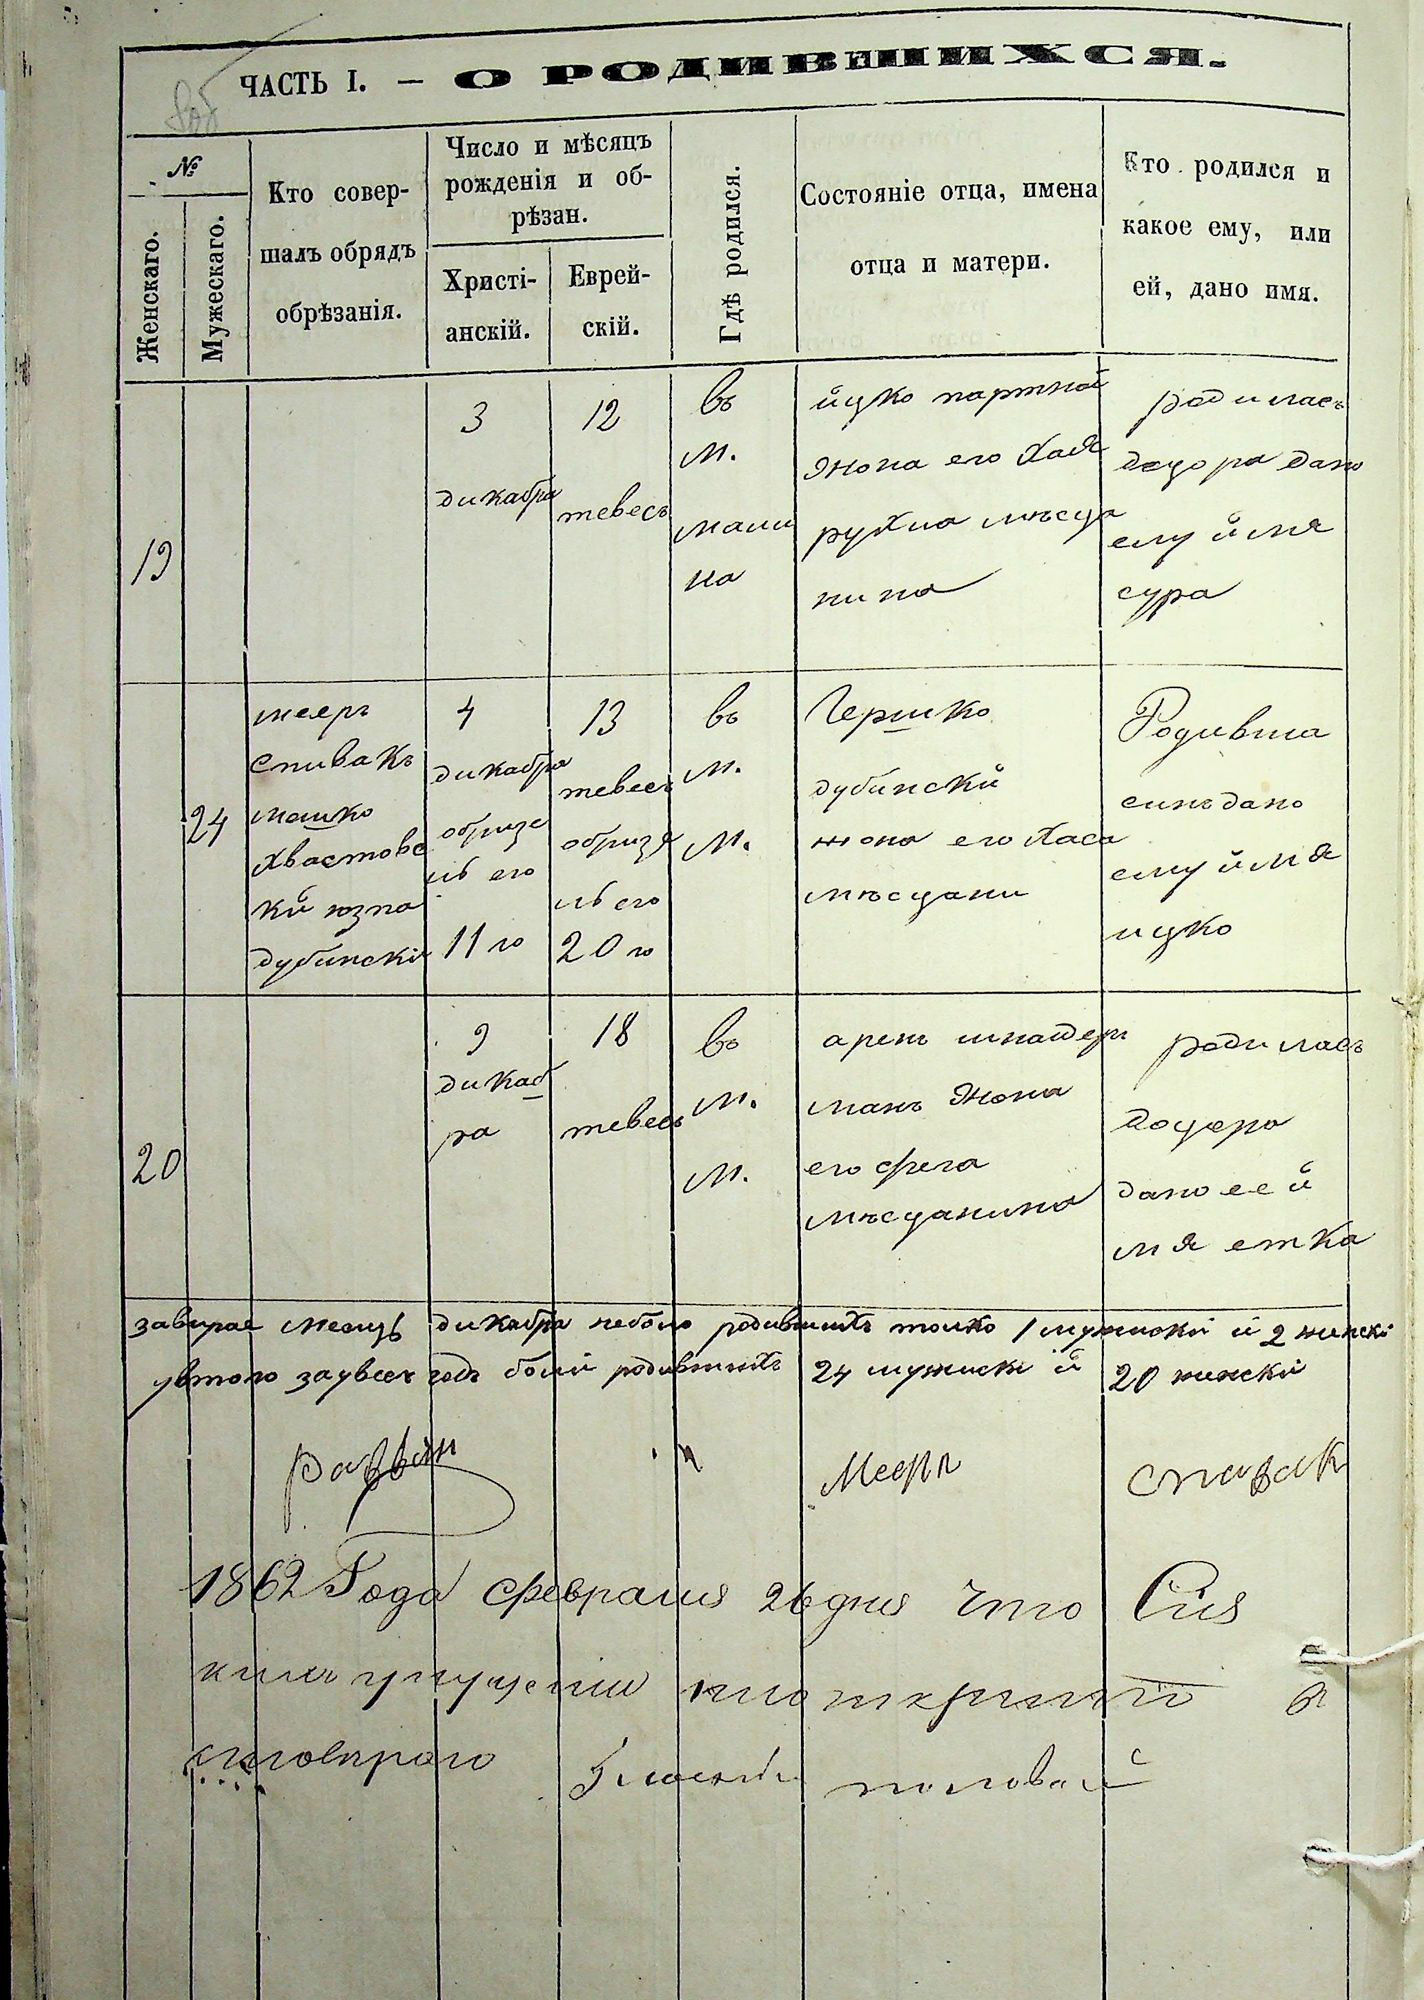 ЧАСТЬ I. — О РОДИВШИХСЯ.
№
Женскаго.
Мужескаго.
Кто совер-
шалъ обрядъ
обрѣзанія.
Число и мѣсяцъ
рожденія и об-
рѣзан.
Христі-
анскій.
Еврей-
скій.
Гдѣ родился.
Состояніе отца, имена
отца и матери.
Кто родился и
какое ему, или
ей, дано имя.
19
3
дикабра
12
тевесъ
въ
м.
мали
на
йцко портной
жона его Хая
рухла мѣсца
нина
родиласъ
доцора дано
ему ймя
сура
24
мееръ
спивакъ
мошко
Хвастовс
кй юзпа
дубинскій
4
дикабра
обризе
лъ его
11 го
13
тевесъ
обризя
лъ его
20 го
въ
м.
м.
Гершко
дубинскй
жона его Хаса
мѣсцани
Родивша
синъ дано
ему ймя
ицко
20
9
дикаб
ра
18
тевесъ
въ
м.
м.
аренъ шнайдеръ
манъ жона
его фрега
мѣсцанина
родиласъ
доцера
дано ее й
мя етка
месицъ дикабра неболо родившихъ толко 1 мужискй й 2 жинскй
годъ болй родившихъ 24 мужискй й 20 жинскй
Мееръ спивак
1862 Года февраля 26 дня что Сия